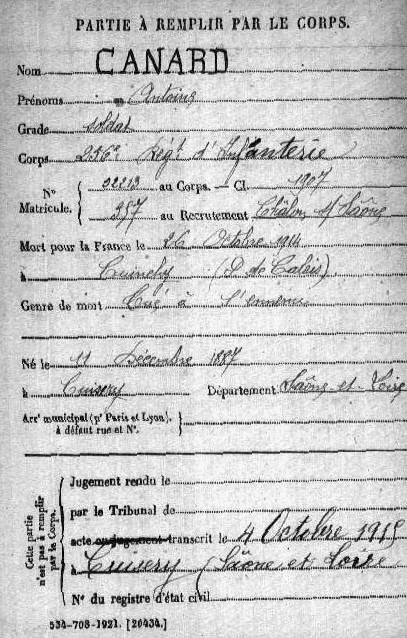 PARTIE À REMPLIR PAR LE CORPS.
Nom CANARD
Prénoms Antoine
Grade soldat
Corps 256e Regt d'Infanterie
N° Matricule. { 22213 au Corps. — Cl. 1907
957 au Recrutement Châlon s/ Saône
Mort pour la France le 26 Octobre 1914
à Cuinchy (P. de Calais)
Genre de mort Tué à l'ennemi
Né le 11 Décembre 1887
à Cuisery Département Saône et Loire
Arrt municipal (pr Paris et Lyon), à défaut rue et N°.
Cette partie n'est pas à remplir par le Corps.
Jugement rendu le
par le Tribunal de
acte ou jugement transcrit le 4 Octobre 1915
à Cuisery (Saône et Loire
N° du registre d'état civil
534-708-1921. [26434.]